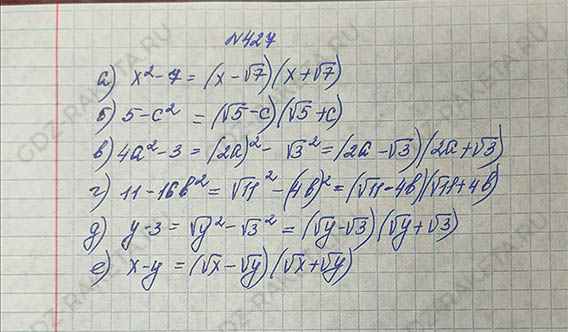 №427
а) x² - 7 = (x - √7)(x + √7)
б) 5 - c² = (√5 - c)(√5 + c)
в) 4a² - 3 = (2a)² - √3² = (2a - √3)(2a + √3)
г) 11 - 16b² = √11² - (4b)² = (√11 - 4b)(√11 + 4b)
д) y - 3 = √y² - √3² = (√y - √3)(√y + √3)
е) x - y = (√x - √y)(√x + √y)
GDZ-RAKETA.RU